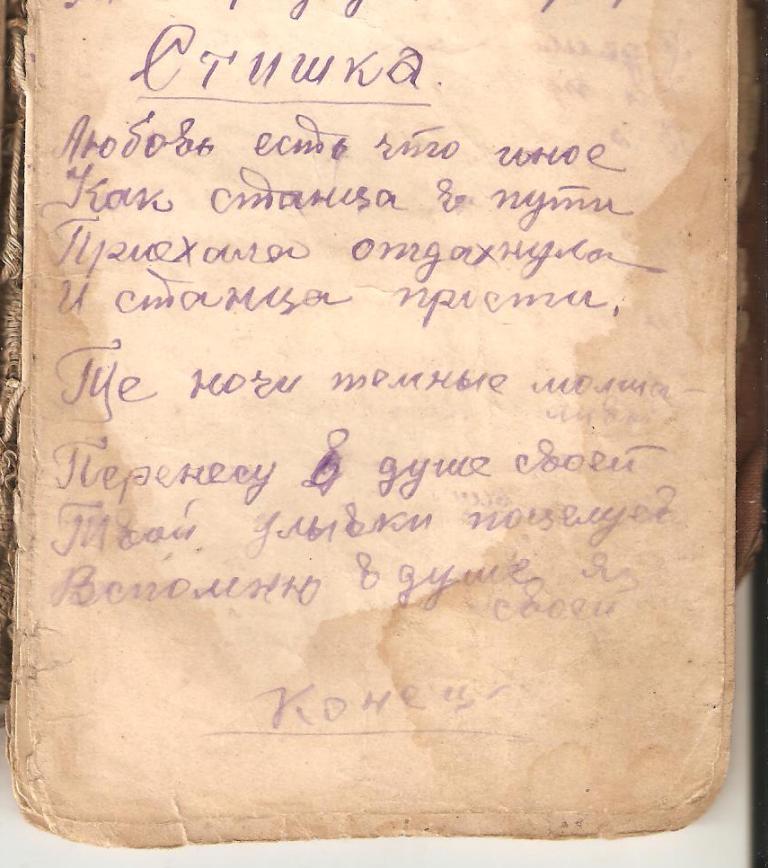 Стишка.
Любовь есть что иное
Как станца в пути
Приехала отдахнула
И станца прости.
Те ночи темные молча-
ливы
Перенесу в душе своей
Твои улывки поцелуев
Вспомню в душе я
своей
Конец